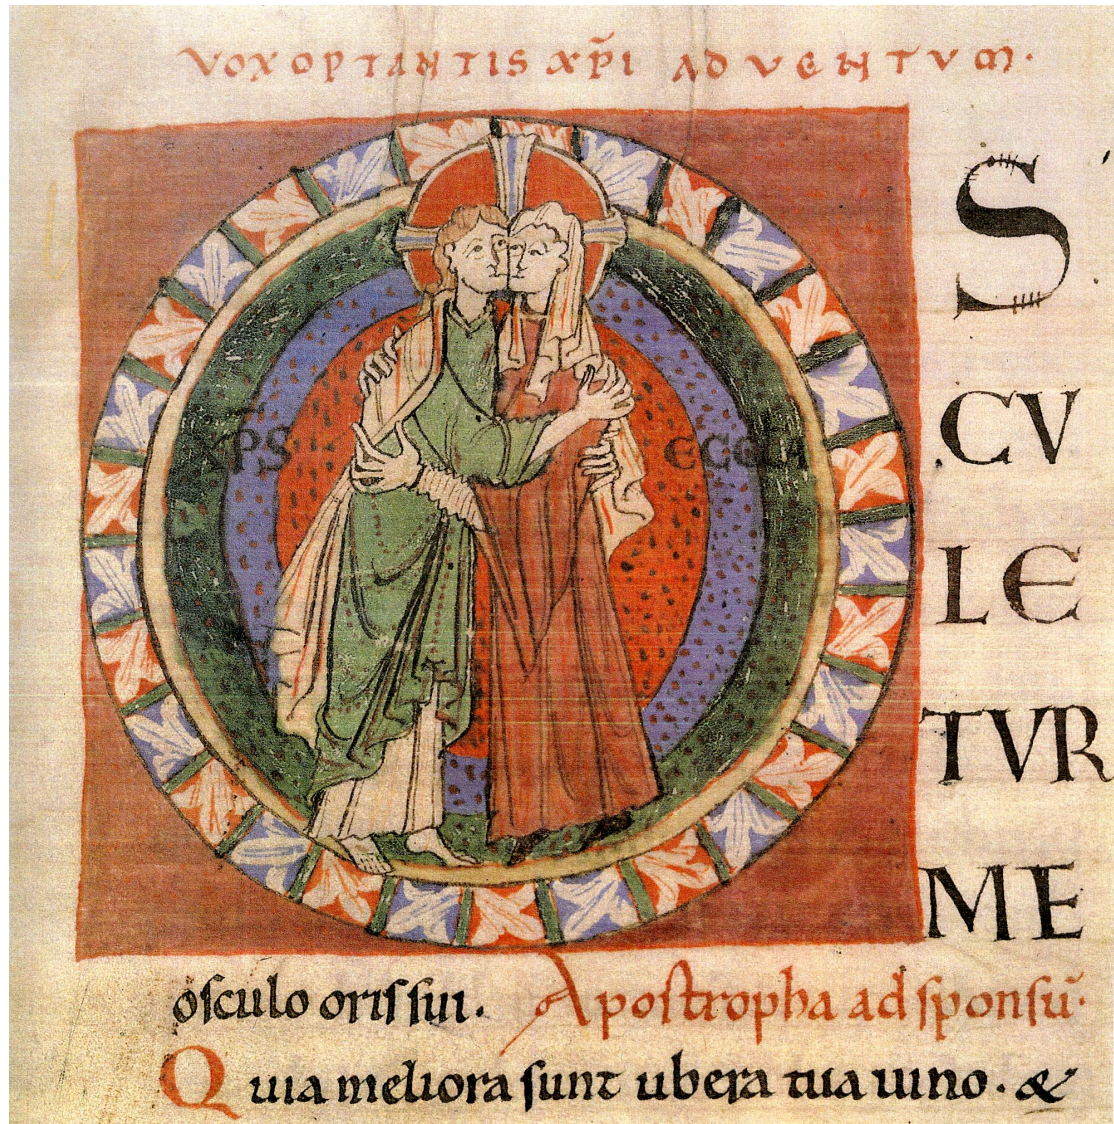 VOX OPTANTIS XP̄I ADVENTVM·
XPS
ECCLA
S
CV
LE
TVR
ME
oſculo oriſ ſui. Apoſtropha ad ſponſū·
Quia meliora ſunt ubera tua uino· &